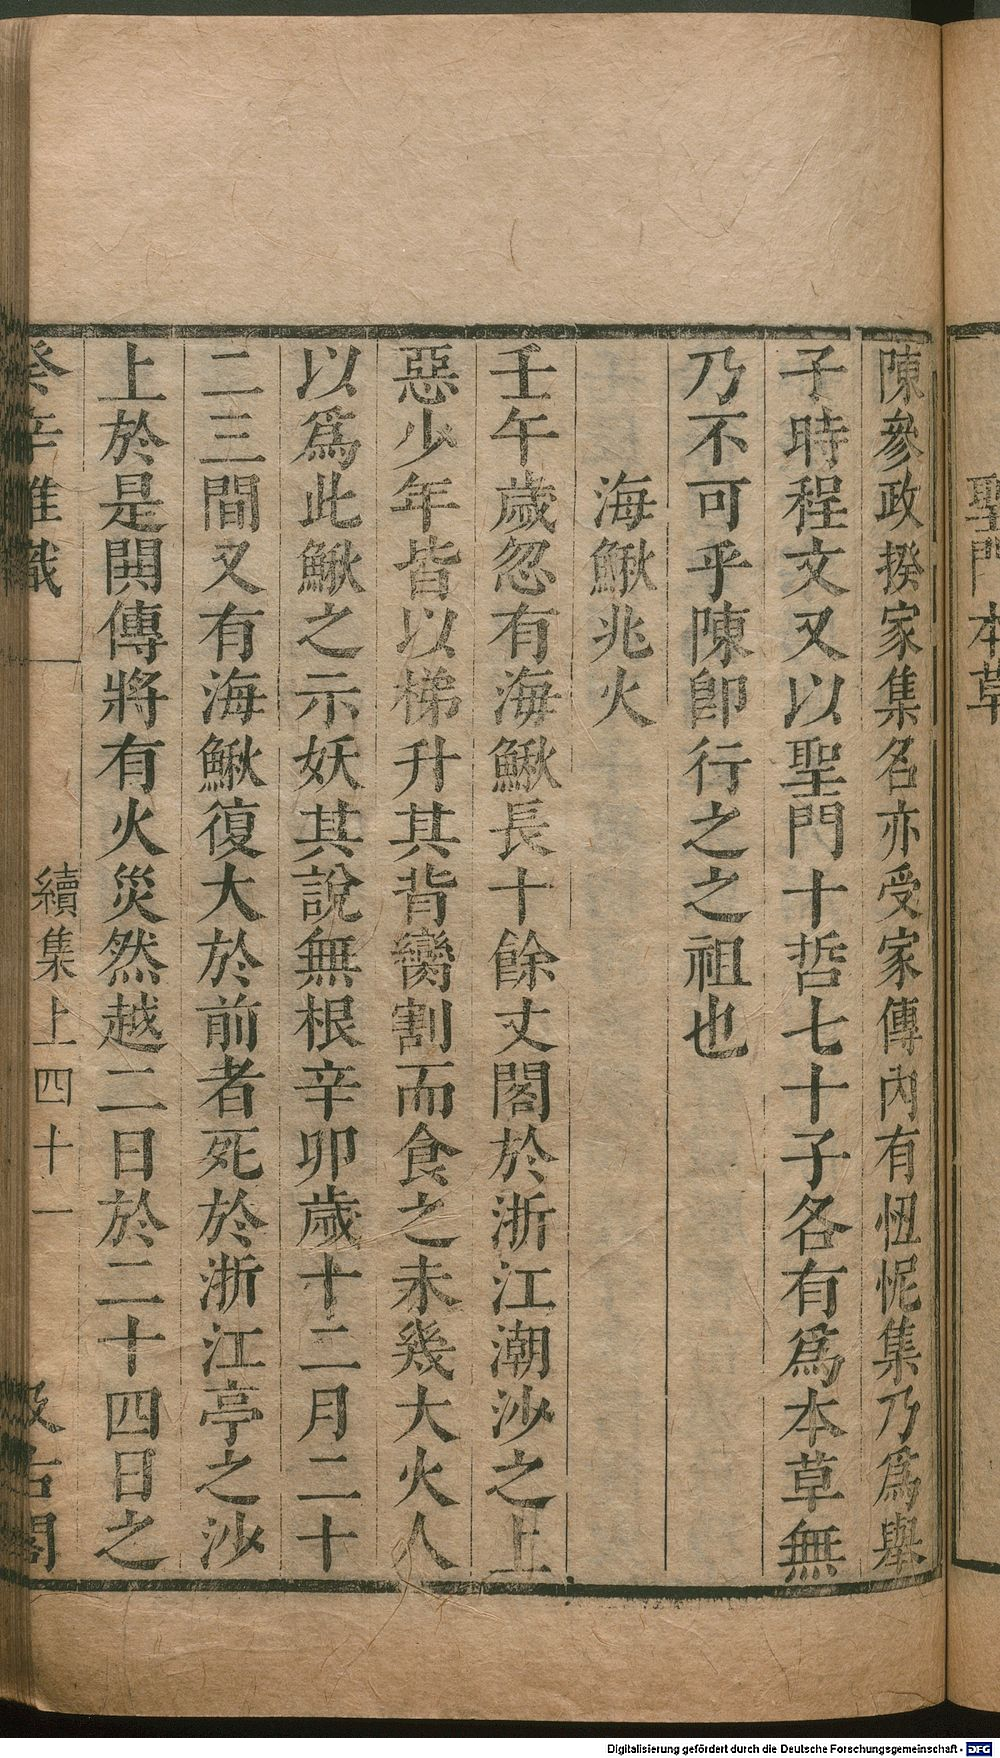 聖門本草
陳參政揆家集名亦受家傳內有忸怩集乃為舉
子時程文又以聖門十哲七十子各有爲本草無
乃不可乎陳卽行之之祖也
海鰍兆火
壬午歲忽有海鰍長十餘丈閣於浙江潮沙之上
惡少年皆以梯升其背臠割而食之未幾大火人
以爲此鰍之示妖其說無根辛卯歲十二月二十
二三間又有海鰍復大於前者死於浙江亭之沙
上於是鬨傳將有火災然越二日於二十四日之
癸辛雜識 續集上 四十一 汲古閣
Digitalisierung gefördert durch die Deutsche Forschungsgemeinschaft - DFG